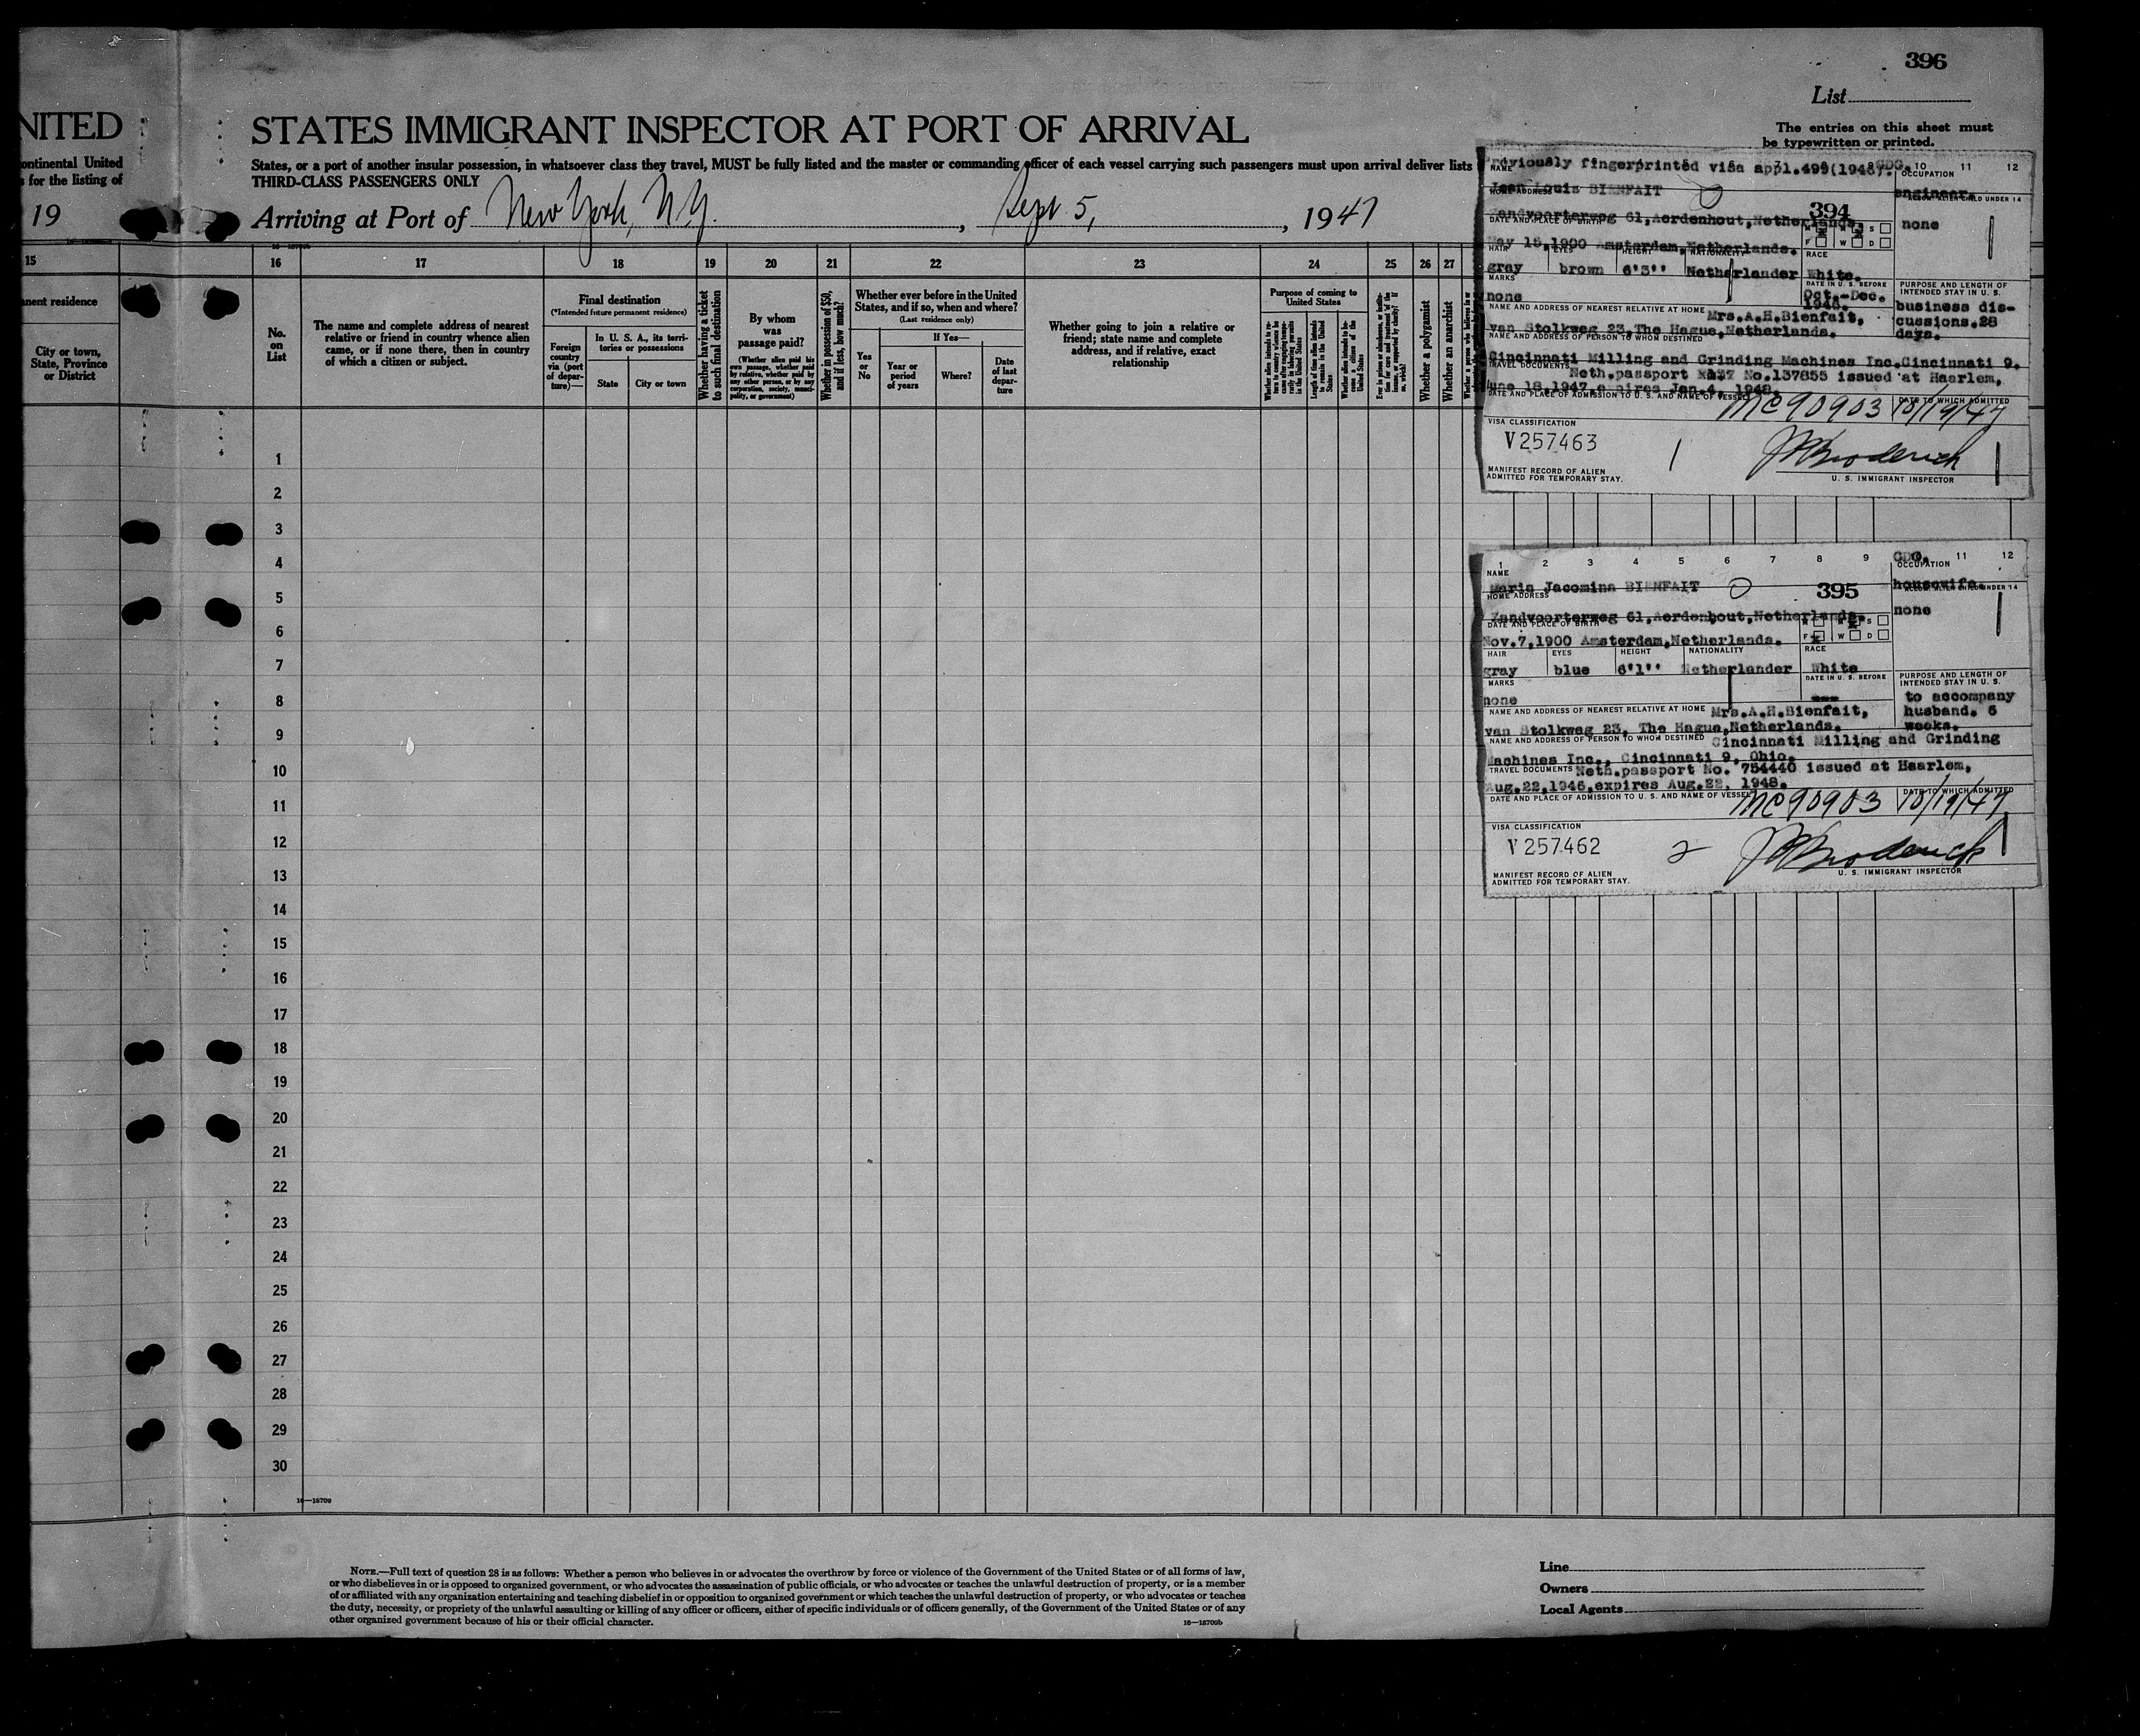 396
List
The entries on this sheet must
be typewritten or printed.
NITED
STATES IMMIGRANT INSPECTOR AT PORT OF ARRIVAL
ontinental United
s for the listing of
States, or a port of another insular possession, in whatsoever class they travel, MUST be fully listed and the master or commanding officer of each vessel carrying such passengers must upon arrival deliver lists
THIRD-CLASS PASSENGERS ONLY
19
Arriving at Port of New York, N.Y., Sept 5, 1947
15
16 17 18 19 20 21 22 23 24 25 26 27
nent residence
City or town,
State, Province
or District
No.
on
List
The name and complete address of nearest
relative or friend in country whence alien
came, or if none there, then in country
of which a citizen or subject.
Final destination
(*Intended future permanent residence)
Foreign
country
via (port
of depar-
ture)—
In U. S. A., its terri-
tories or possessions
State
City or town
Whether having a ticket
to such final destination
By whom
was
passage paid?
(Whether alien paid his
own passage, whether paid
by relative, whether paid by
any other person, or by any
corporation, society, munici-
pality, or government)
Whether in possession of $50,
and if less, how much?
Whether ever before in the United
States, and if so, when and where?
(Last residence only)
Yes
or
No
If Yes—
Year or
period
of years
Where?
Date
of last
depar-
ture
Whether going to join a relative or
friend; state name and complete
address, and if relative, exact
relationship
Purpose of coming to
United States
Length of time alien intends
to remain in the United
States
Whether alien intends to be-
come a citizen of the
United States
Whether a polygamist
Whether an anarchist
1
2
3
4
5
6
7
8
9
10
11
12
13
14
15
16
17
18
19
20
21
22
23
24
25
26
27
28
29
30
16—18709
Previously fingerprinted visa appl.499(1948).GDG. 10 11 12
NAME
OCCUPATION
Jean Louis BIENFAIT
engineer.
HOME ADDRESS
394
Zandvoorterweg 61,Aerdenhout,Netherlands.
none
DATE AND PLACE OF BIRTH
M W S
F W D
May 15,1900 Amsterdam,Netherlands.
HAIR EYES HEIGHT NATIONALITY RACE
gray brown 6'3'' Netherlander White.
MARKS
DATE IN U. S. BEFORE
PURPOSE AND LENGTH OF
INTENDED STAY IN U. S.
none
Oct.-Dec.
1946.
business dis-
cussions.28
days.
NAME AND ADDRESS OF NEAREST RELATIVE AT HOME Mrs.A.H.Bienfait,
van Stolkweg 23,The Hague,Netherlands.
NAME AND ADDRESS OF PERSON TO WHOM DESTINED
Cincinnati Milling and Grinding Machines Inc.Cincinnati 9.
TRAVEL DOCUMENTS
Neth.passport No.137855 issued at Haarlem,
June 18,1947,expires Jan.4, 1948.
DATE AND PLACE OF ADMISSION TO U. S. AND NAME OF VESSEL
DATE TO WHICH ADMITTED
MC90903 10/19/47
VISA CLASSIFICATION
V257463
1
JRBroderick
MANIFEST RECORD OF ALIEN
ADMITTED FOR TEMPORARY STAY.
U. S. IMMIGRANT INSPECTOR
1 2 3 4 5 6 7 8 9 GDG. 11 12
NAME
OCCUPATION
Maria Jacomina BIENFAIT
housewife.
HOME ADDRESS
395
Zandvoorterweg 61,Aerdenhout,Netherlands.
none
DATE AND PLACE OF BIRTH
S
F W D
Nov.7,1900 Amsterdam,Netherlands.
HAIR EYES HEIGHT NATIONALITY RACE
gray blue 6'1'' Netherlander White
MARKS
DATE IN U. S. BEFORE
PURPOSE AND LENGTH OF
INTENDED STAY IN U. S.
none
---
to accompany
husband. 6
weeks.
NAME AND ADDRESS OF NEAREST RELATIVE AT HOME Mrs.A.H.Bienfait,
van Stolkweg 23, The Hague,Netherlands.
NAME AND ADDRESS OF PERSON TO WHOM DESTINED Cincinnati Milling and Grinding
Machines Inc., Cincinnati 9, Ohio.
TRAVEL DOCUMENTS Neth.passport No. 754440 issued at Haarlem,
Aug.22,1946,expires Aug.22, 1948.
DATE AND PLACE OF ADMISSION TO U. S. AND NAME OF VESSEL
DATE TO WHICH ADMITTED
MC90903 10/19/47
VISA CLASSIFICATION
V257462
2
JRBroderick
MANIFEST RECORD OF ALIEN
ADMITTED FOR TEMPORARY STAY.
U. S. IMMIGRANT INSPECTOR
NOTE.—Full text of question 28 is as follows: Whether a person who believes in or advocates the overthrow by force or violence of the Government of the United States or of all forms of law,
or who disbelieves in or is opposed to organized government, or who advocates the assassination of public officials, or who advocates or teaches the unlawful destruction of property, or is a member
of or affiliated with any organization entertaining and teaching disbelief in or opposition to organized government or which teaches the unlawful destruction of property, or who advocates or teaches
the duty, necessity, or propriety of the unlawful assaulting or killing of any officer or officers, either of specific individuals or of officers generally, of the Government of the United States or of any
other organized government because of his or their official character.
16—18709b
Line
Owners
Local Agents